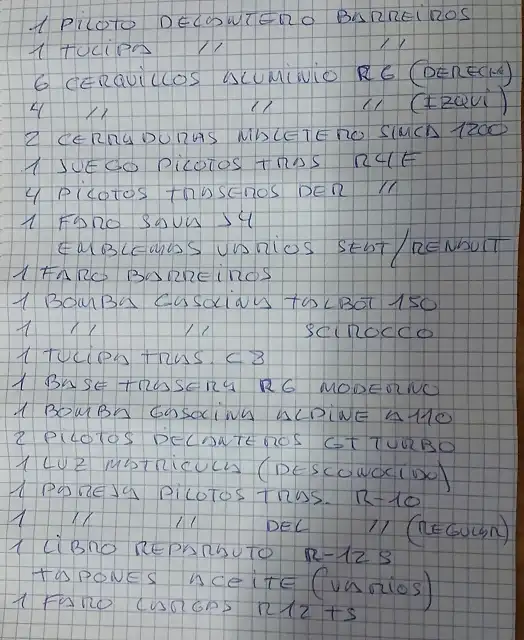 1 PILOTO DELANTERO BARREIROS
1 TULIPA // //
6 CERQUILLOS ALUMINIO R6 (DERECH)
4 // // // (IZQUI)
2 CERRADURAS MALETERO SIMCA 1200
1 JUEGO PILOTOS TRAS R4F
4 PILOTOS TRASEROS DER //
1 FARO SAVA J4
EMBLEMAS VARIOS SEAT/RENAULT
1 FARO BARREIROS
1 BOMBA GASOLINA TALBOT 150
1 // // SCIROCCO
1 TULIPA TRAS. C8
1 BASE TRASERA R6 MODERNO
1 BOMBA GASOLINA ALPINE A110
2 PILOTOS DELANTEROS GT TURBO
1 LUZ MATRICULA (DESCONOCIDO)
1 PAREJA PILOTOS TRAS. R-10
1 // // DEL // (REGULAR)
1 LIBRO REPARAUTO R-12 S
TAPONES ACEITE (VARIOS)
1 FARO LARGAS R12 TS